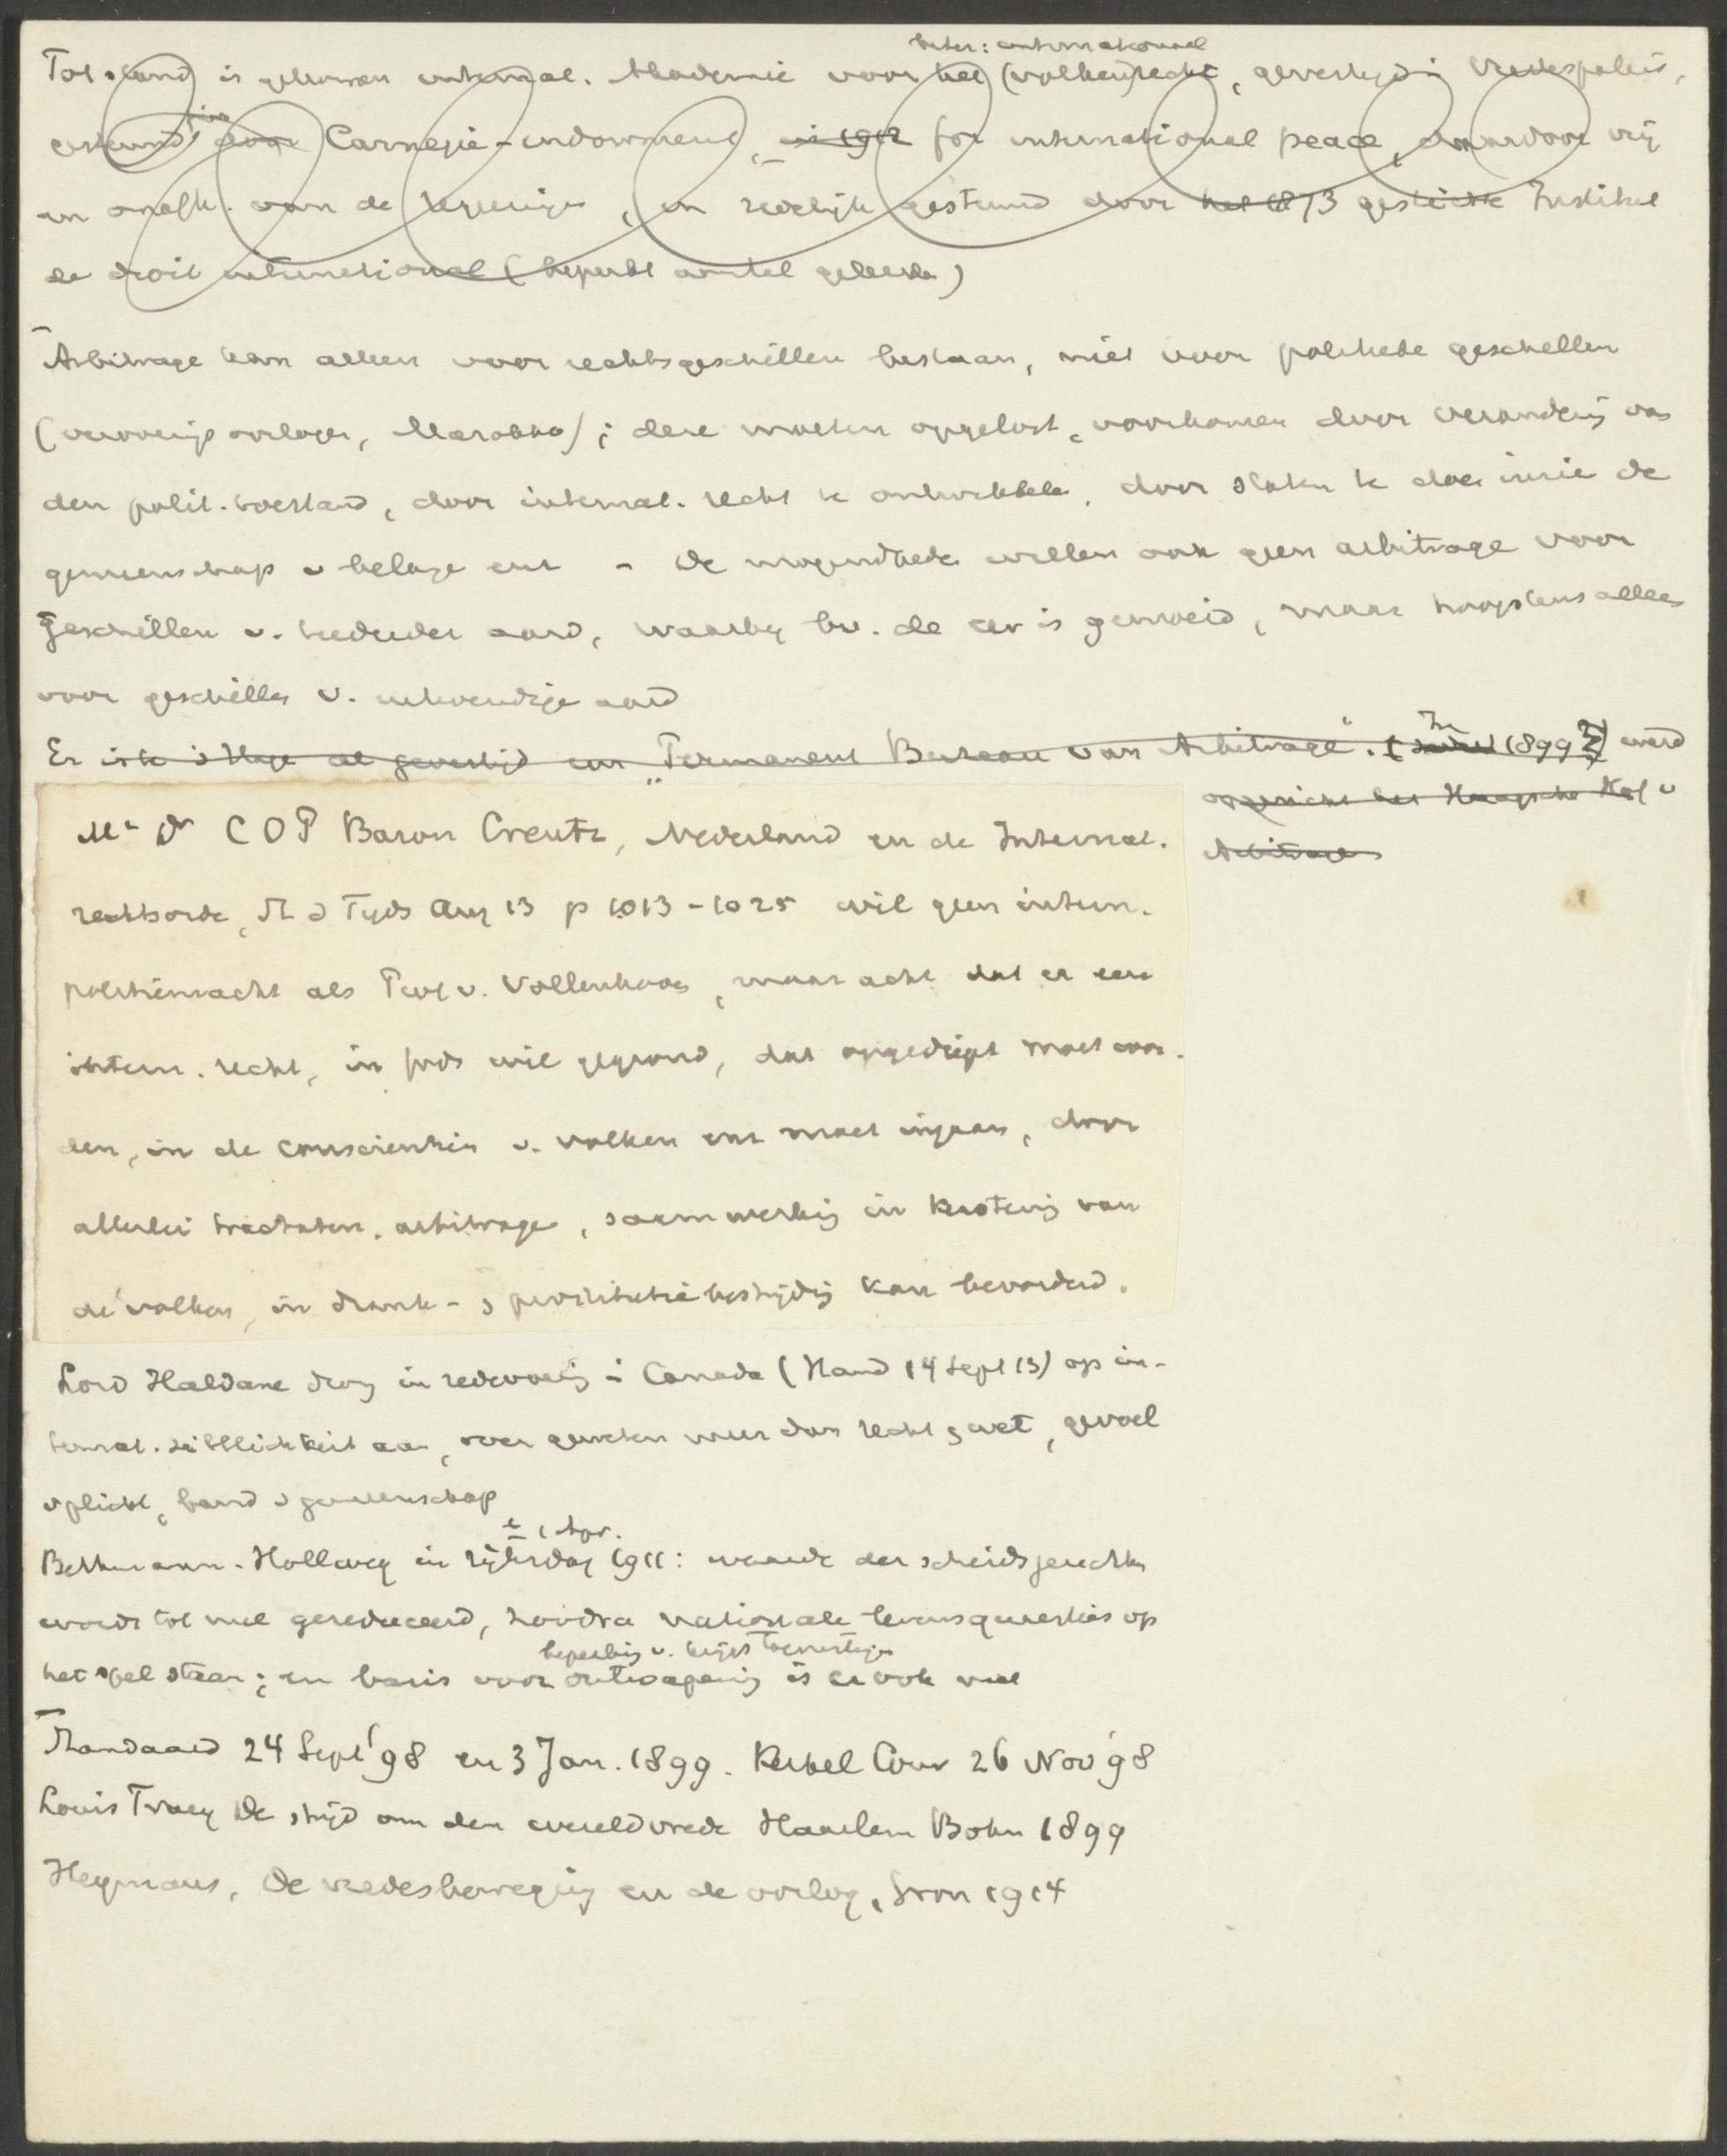 beter: internationaal
Tot stand is gekomen internat. Akademie voor het (volken)recht, gevestigd i Vredespaleis,
gesteund door Carnegie-endowment, in 1912 for international peace, daardoor vrij
en onafh. van de regeeringen, en zedelijk gesteund door het 1873 gestichte Institut
de droit international (beperkt aantal geleerden)
Arbitrage kan alleen voor rechtsgeschillen bestaan, niet voor politieke geschillen
(veroverings oorlogen, Marokko); deze moeten opgelost, voorkomen door verandering van
den polit. toestand, door internat. recht te ontwikkelen, door staten te doen inzien de
gemeenschap v belangen enz - De mogendheden willen ook geen arbitrage voor
geschillen v. aard, waarby bv. de eer is gemoeid, maar hoogstens alleen
voor geschillen v. aard
Er is te 's Hage al gevestigd een "Permanent Bureau van Arbitrage". (In 1899?) werd
opgericht het Haagsche Hof v
Arbitrage
Mr Dr C O P Baron Creutz, Nederland en de Internat.
rechtsorde, St d Tyds Aug 13 p 1013-1025 wil geen intern.
politiemacht als Prof v. Vollenhoven, maar acht dat er een
intern. recht, in Gods wil gegrond, dat opgediept moet wor-
den, in de conscientien v. volken enz moet ingaan, door
allerlei tractaten, arbitrage, saamwerking in kerstening van
de volken, in drank- & prostitutiebestrijding kan bevorderd.
Lord Haldane drong in redevoering i Canada (Stand 14 Sept 13) op in-
ternat. Sittlichkeit aan, over gewoonten meer dan recht & wet, gevoel
v plicht, band v gemeenschap
1 Apr.
Bethmann-Hollweg in rijksdag 1911: waarde der scheidsgerechten
wordt tot nul gereduceerd, zoodra nationale levensquaesties op
beperking v. krijgstoerustingen
het spel staan; en basis voor ontwapening is er ook niet
Standaard 24 Sept '98 en 3 Jan. 1899. Kerkel Cour 26 Nov '98
Louis Tracy De strijd om den wereldvrede Haarlem Bohn 1899
Heymans, De vredesbeweging en de oorlog, Gron 1914